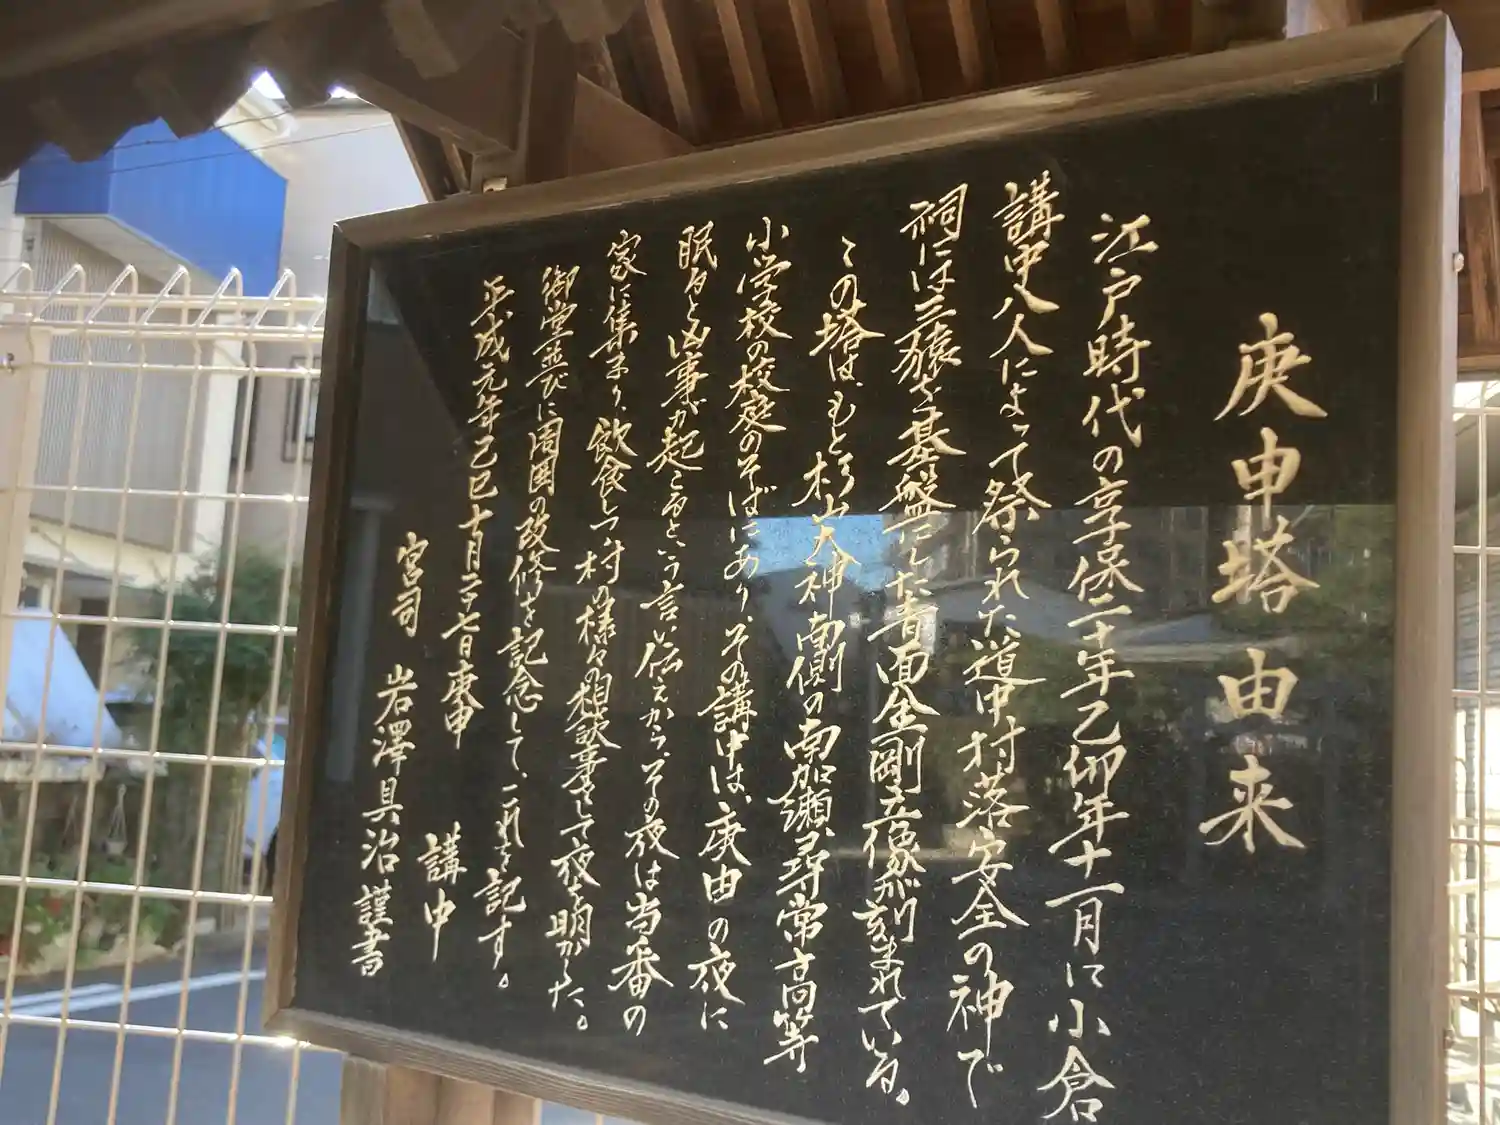 庚申塔由来
江戸時代の享保二十年乙卯年十一月に小倉
講中八人によって祭られた道中村落安全の神で
祠には三猿を基盤にした青面金剛立像が刻まれている。
この塔は、もと杉山大神南側の南加瀬尋常高等
小学校の校庭のそばにあり、その講中は、庚申の夜に
眠ると凶事が起こるという言い伝えから、その夜は当番の
家に集まり、飲食しつゝ村の様々の相談事をして夜を明かした。
御堂並びに周囲の改修を記念して、これを記す。
平成元年己巳十月二十七日庚申
講中
宮司 岩澤具治 謹書